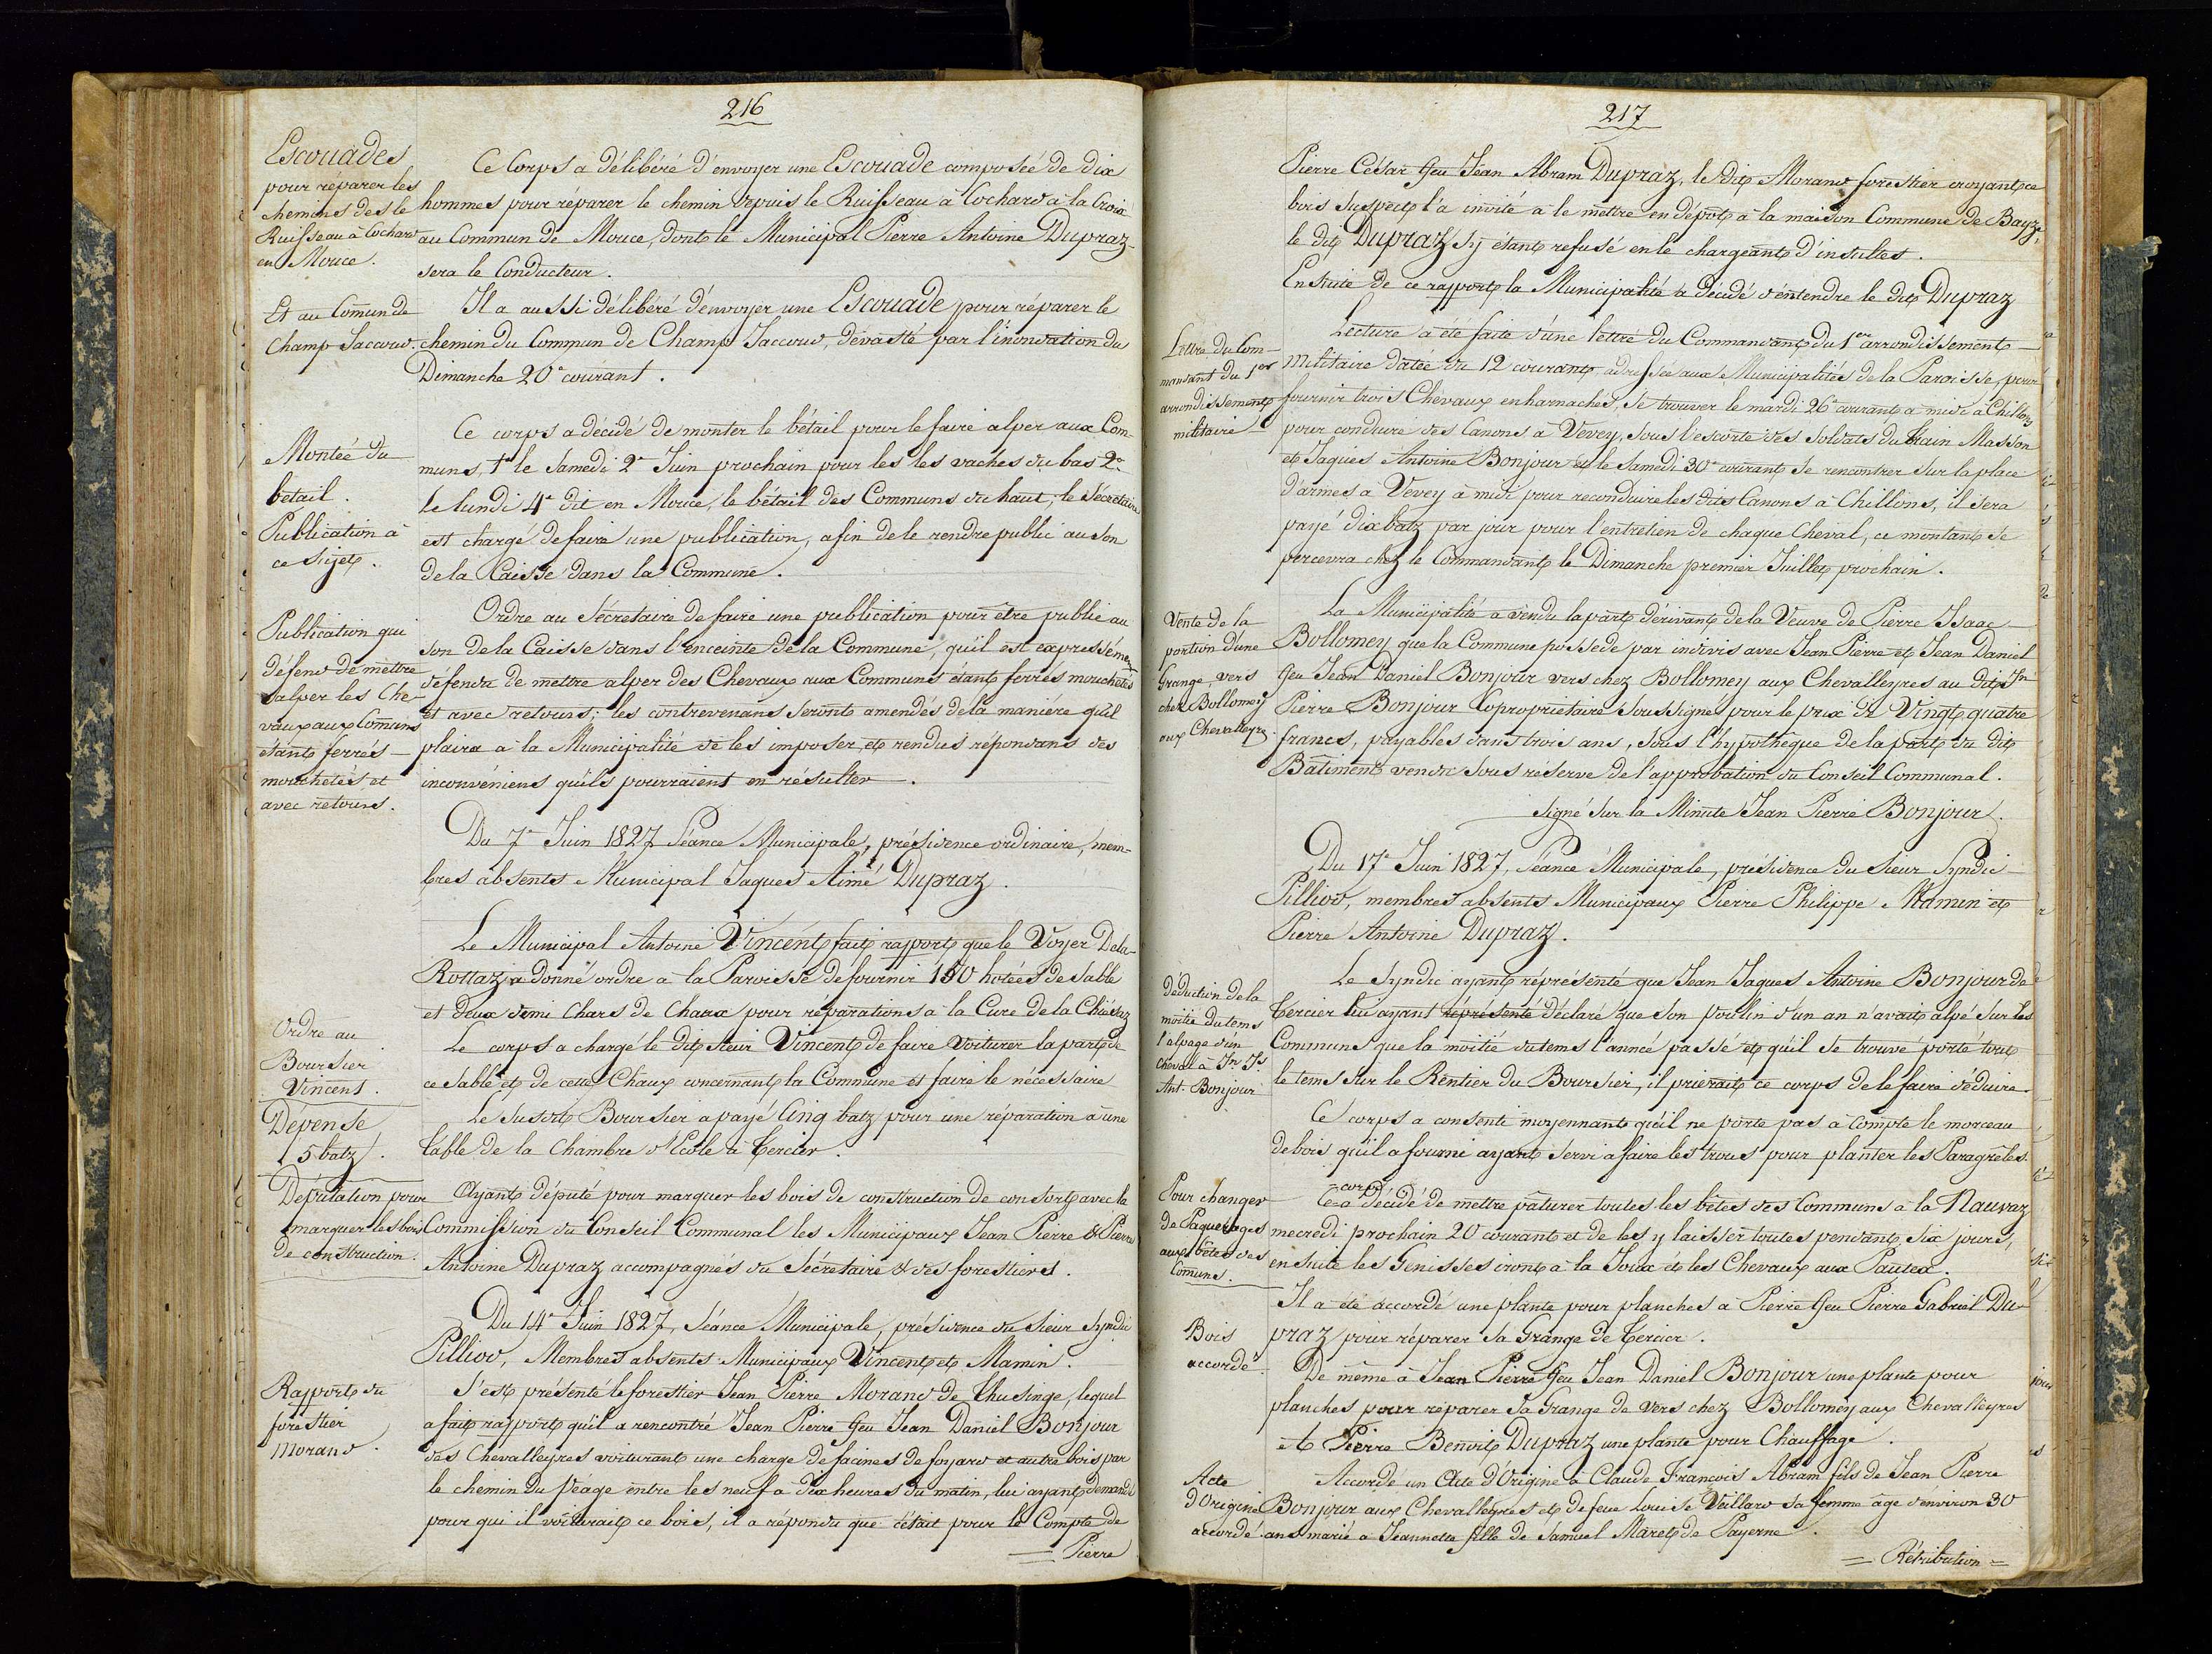 216
Escouades
pour réparer les
chemins des le
Ruisseau à Cochard
en Mouce.
Ce Corps a délibéré d'envoyer une Escouade composée de dix
hommes pour réparer le chemin depuis le Ruisseau à Cochard à la Croix
au Commun de Mouce, dont le Municipal Pierre Antoine Dupraz
sera le Conducteur.
Et au Comun de
Champ Jaccoud.
Il a aussi délibéré d'envoyer une Escouade pour réparer le
chemin du Commun de Champ Jaccoud, dévasté par l'inondation du
Dimanche 20e courant.
Montée du
bétail.
Publication à
ce sujet.
Ce corps a décidé de monter le bétail pour le faire alper aux Com-
muns, 1o le Samedi 2e Juin prochain pour les les vaches du bas 2o
Le lundi 4e dit en Mouce, le bétail des Communs du haut, le Sécretaire
est chargé de faire une publication, afin de le rendre public au son
de la Caisse dans la Commune.
Publication qui
défend de mettre
alper les Che-
vaux aux Comuns
étant ferrés
mouchetés et
avec retours.
Ordre au Sécretaire de faire une publication pour être publié au
son de la Caisse dans l'enceinte de la Commune, qu'il est expressément
défendu de mettre alper des Chevaux aux Communs étant ferrés mouchetés
et avec retours; les contrevenans seront amendés de la manière qu'il
plaira à la Municipalité de les imposer, et rendus répondans des
inconvéniens qu'ils pourraient en résulter.
Du 7e Juin 1827 Séance Municipale, présidence ordinaire, mem-
bres absents Municipal Jaques Aimé Dupraz.
Ordre au
Boursier
Vincent.
Le Municipal Antoine Vincent fait rapport que le Voyer Dela-
Rottaz a donné ordre à la Paroisse de fournir 150 hotées de Sable
et deux demi Chars de Chaux pour réparations à la Cure de la Chiésaz
Le corps a chargé le dit sieur Vincent de faire voiturer la part de
ce Sable et de cette Chaux concernant la Commune et faire le nécessaire
Dépense
5 batz.
Le Susdit Boursier a payé Cinq batz pour une réparation à une
table de la Chambre d'Ecole à Tercier.
Députation pour
marquer les bois
de construction.
Ayant député pour marquer les bois de construction de consort avec la
Commission du Conseil Communal les Municipaux Jean Pierre & Pierre
Antoine Dupraz accompagnés du Sécretaire & des forestiers.
Du 14e Juin 1827, Séance Municipale, présidence du Sieur Syndic
Pilliod, Membres absents Municipaux Vincent et Mamin.
Rapport du
forestier
Morand.
S'est présenté le forestier Jean Pierre Morand de Thusinge, lequel
a fait rapport qu'il a rencontré Jean Pierre feu Jean Daniel Bonjour
des Chevalleyres voiturant une charge de facines de foyard et autre bois par
le chemin du Péage entre les neuf à dix heures du matin, lui ayant demandé
pour qui il voiturait ce bois, il a répondu que c'était pour le Compte de
= Pierre
217
Pierre César feu Jean Abram Dupraz, le dit Morand forestier croyant ce
bois suspect l'a invité à le mettre en dépot à la maison Commune de Bayze,
le dit Dupraz s'y étant refusé en le chargeant d'insultes.
Ensuite de ce rapport la Municipalité a décidé d'entendre le dit Dupraz
Lettre du Com-
mandant du 1er
arrondissement
militaire
Lecture a été faite d'une lettre du Commandant du 1er arrondissement
Militaire datée du 12 courant adressée aux Municipalités de la Paroisse, pour
fournir trois Chevaux enharnachés, se trouver le mardi 26e courant à midi à Chillons
pour conduire des Canons à Vevey, sous l'escorte des soldats du train Masson
et Jaques Antoine Bonjour et le Samedi 30e courant se rencontrer sur la place
d'armes à Vevey à midi pour reconduire les dits Canons à Chillons, il sera
payé dix batz par jour pour l'entretien de chaque Cheval, ce montant se
percevra chez le Commandant le Dimanche premier Juillet prochain.
Vente de la
portion d'une
Grange vers
chez Bollomey
aux Chevalleyres
La Municipalité a vendu la part dérivant de la Veuve de Pierre Isaac
Bollomey que la Commune possede par indivis avec Jean Pierre et Jean Daniel
feu Jean Daniel Bonjour vers chez Bollomey aux Chevalleyres au dit Jn
Pierre Bonjour Copropriétaire soussigné pour le prix de Vingt quatre
francs, payables dans trois ans, sous l'hypothèque de la part du dit
Bâtiment vendu sous réserve de l'approbation du Conseil Communal.
signé sur la Minute Jean Pierre Bonjour.
Du 17e Juin 1827, Séance Municipale, présidence du sieur Syndic
Pilliod, membres absents Municipaux Pierre Philippe Mamin et
Pierre Antoine Dupraz.
déduction de la
moitié du tems
l'alpage d'un
cheval à Jn Js
Ant. Bonjour
Le Syndic ayant réprésenté que Jean Jaques Antoine Bonjour de
Tercier lui ayant réprésenté déclaré que son poulin d'un an n'avait alpé sur les
Communs que la moitié du tems l'année passé et qu'il se trouve porté tout
le tems sur le Rentier du Boursier, il prierait ce corps de le faire déduire.
Ce corps a consenti moyennant qu'il ne porte pas à compte le morceau
de bois qu'il a fourni ayant servi à faire les trous pour planter les Paragrêles.
Pour changer
de Paquerages
aux bêtes des
Comuns.
corps
Ce a décidé de mettre pâturer toutes les bêtes des Communs à la Nauvaz
mecredi prochain 20 courant et de les y laisser toutes pendant six jours,
ensuite les Genisses iront à la Joux et les Chevaux aux Pautex.
Bois
accordé.
Il a été accordé une plante pour planches à Pierre feu Pierre Gabriel Du-
praz pour réparer sa Grange de Tercier.
De même à Jean Pierre feu Jean Daniel Bonjour une plante pour
planches pour réparer sa Grange de vers chez Bollomey aux Chevalleyres
et Pierre Benoit Dupraz une plante pour Chauffage.
Acte
d'Origine
accordé.
Accordé un Acte d'Origine à Claude François Abram fils de Jean Pierre
Bonjour aux Chevalleyres et de feue Louise Veillard sa femme âgé d'environ 30
ans marié à Jeannette fille de Samuel Maret de Payerne.
= Rétribution =